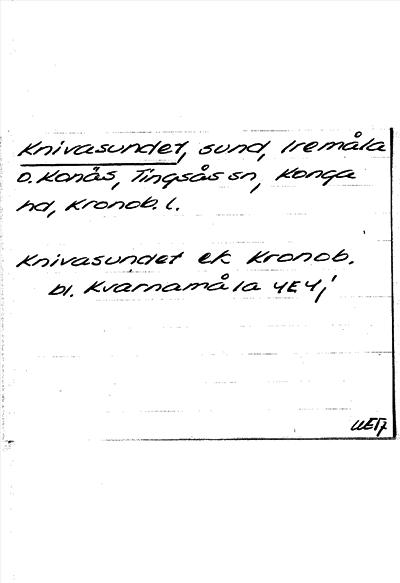 Knivasundet, sund, Iremåla
o. Konäs, Tingsås sn, Konga
hd, Kronob. l.
Knivasundet ek Kronob.
bl. Kvarnamåla 4E4j